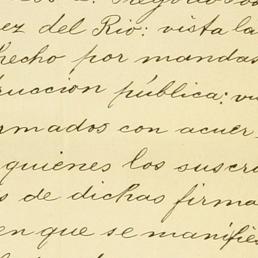 ez del Rio: vista la
hecho por mandas
rucción pública; vi
rmados con acuer
quienes los suscri
s de dichas firma
en que se manifie